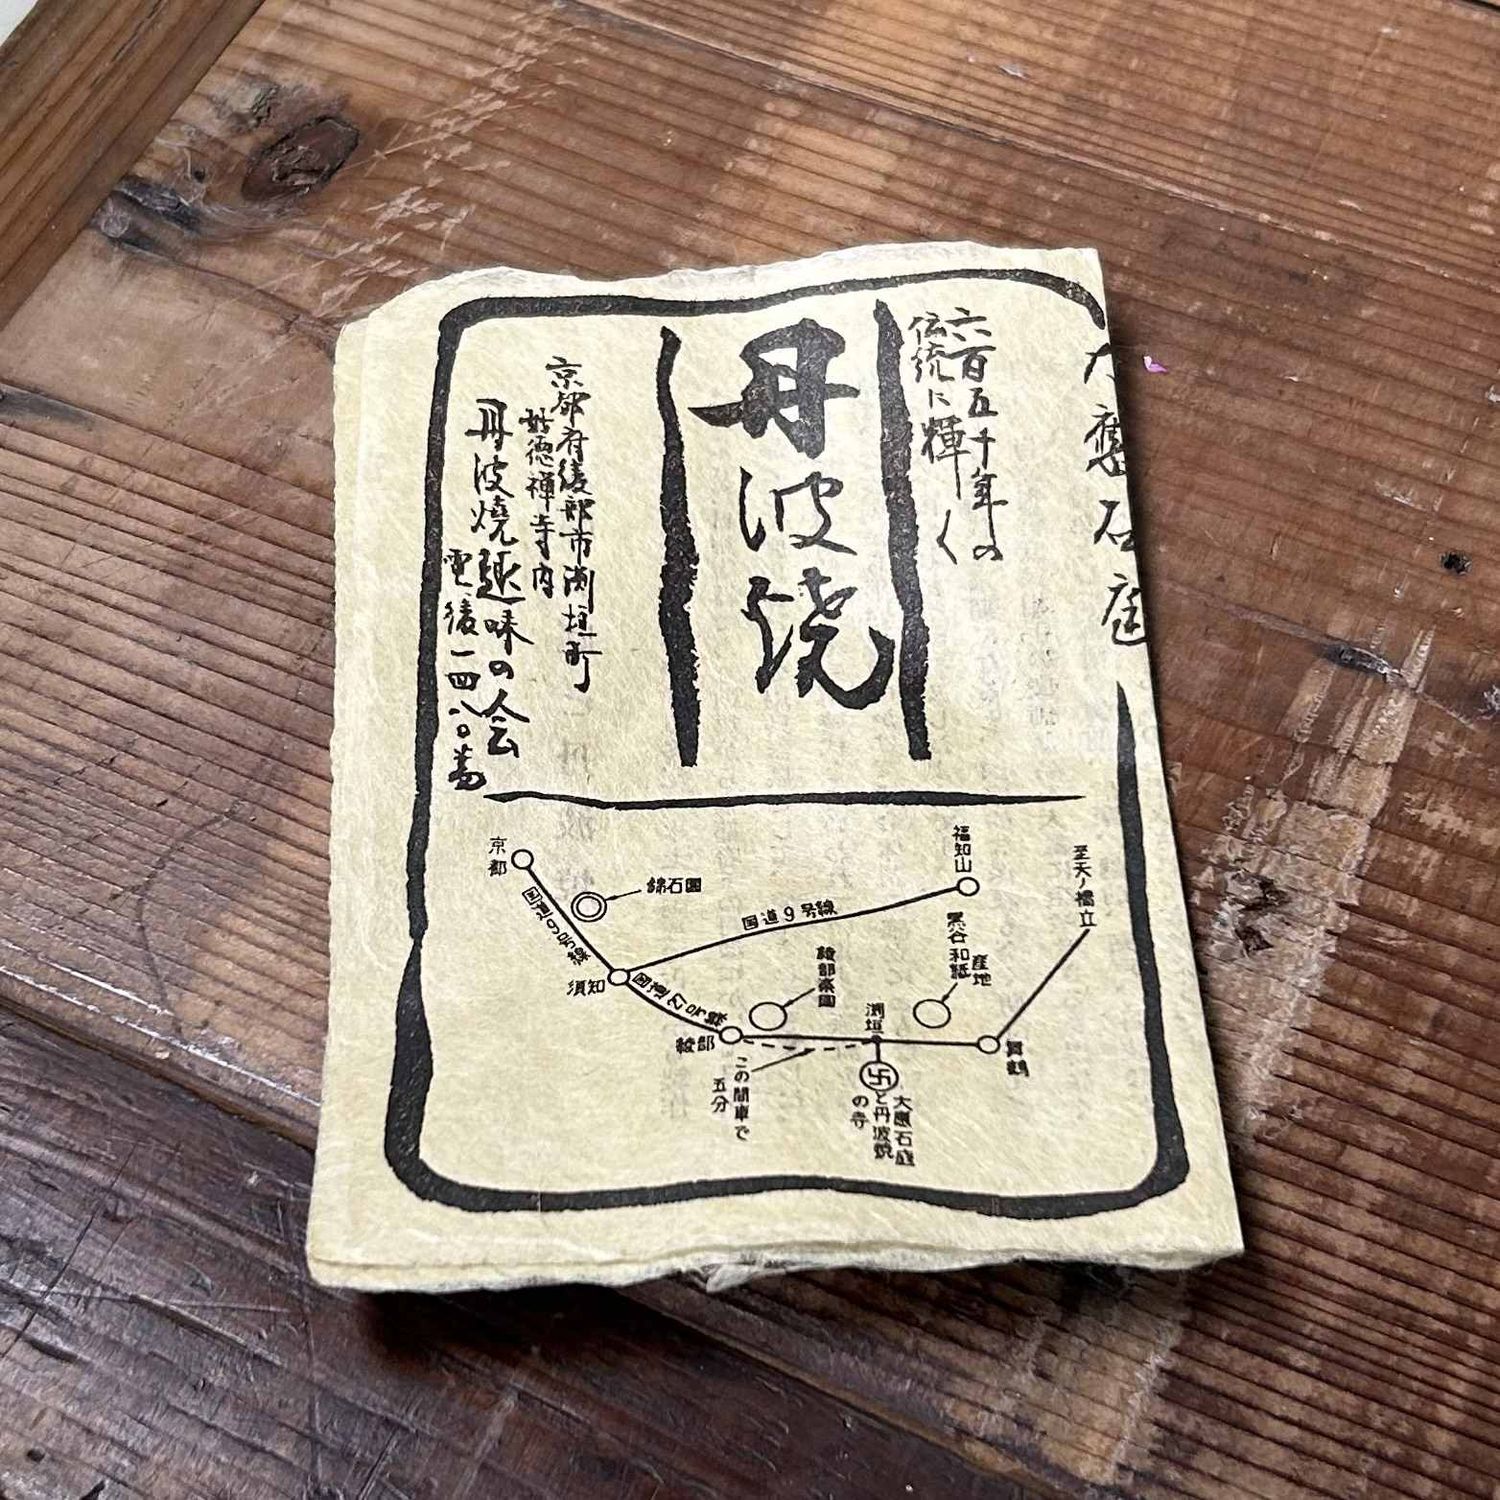 大應石庭
六百五十年の
伝統に輝く
丹波焼
京都府綾部市渕垣町
妙徳禅寺内
丹波焼趣味の会
電綾一四八〇番
京都
国道9号線
綿石園
須知
国道9号線
福知山
国道27号線
綾部
綾部楽園
この間車で
五分
渕垣
黒谷和紙
産地
舞鶴
至天ノ橋立
卍
大應石庭
と丹波焼
の寺